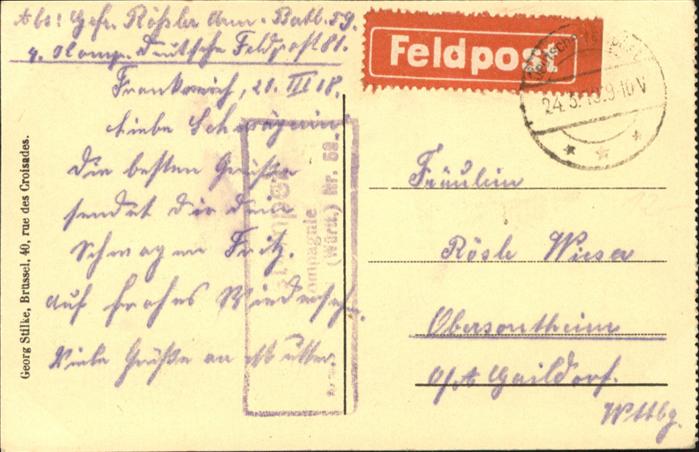 Abs: Gefr. Rößler Arm.-Batl. 59
4. Komp. Deutsche Feldpost 81.
Frankreich, 21. III 18.
Liebe Schwägerin
Die besten Grüße
sendet Dir dein
Schwager Fritz.
Auf frohes Wiederseh.
Viele Grüße an Mutter.
Feldpost
24.3.18.9-10V
ompagnie
(Württ.) Nr. 59.
Fräulein
Rösle Wieser
Obersontheim
O/A Gaildorf.
Wttbg.
Georg Stilke, Brüssel, 40, rue des Croisades.